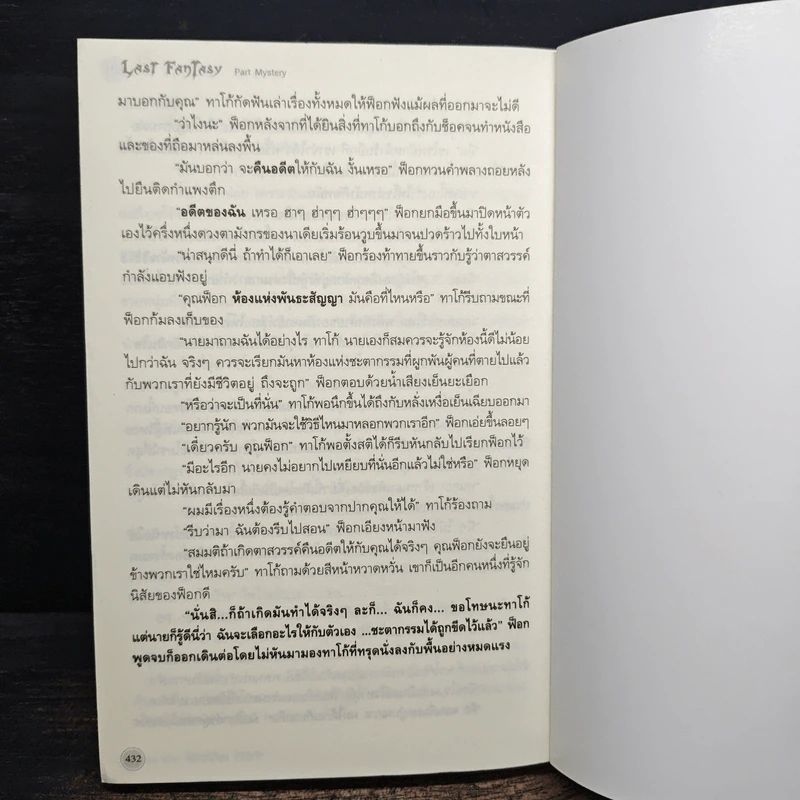 Last Fantasy Part Mystery
มาบอกกับคุณ" ทาโก้กัดฟันเล่าเรื่องทั้งหมดให้ฟ็อกฟังแม้ผลที่ออกมาจะไม่ดี
"ว่าไงนะ" ฟ็อกหลังจากที่ได้ยินสิ่งที่ทาโก้บอกถึงกับช็อคจนทำหนังสือ
และของที่ถือมาหล่นลงพื้น
"มันบอกว่า จะคืนอดีตให้กับฉัน งั้นเหรอ" ฟ็อกทวนคำพลางถอยหลัง
ไปยืนติดกำแพงตึก
"อดีตของฉัน เหรอ ฮาๆ ฮ่าๆๆ ฮ่าๆๆๆ" ฟ็อกยกมือขึ้นมาปิดหน้าตัว
เองไว้ครึ่งหนึ่งดวงตามังกรของนาเดียเริ่มร้อนวูบขึ้นมาจนปวดร้าวไปทั้งใบหน้า
"น่าสนุกดีนี่ ถ้าทำได้ก็เอาเลย" ฟ็อกร้องท้าทายขึ้นราวกับรู้ว่าตาสวรรค์
กำลังแอบฟังอยู่
"คุณฟ็อก ห้องแห่งพันธะสัญญา มันคือที่ไหนหรือ" ทาโก้รีบถามขณะที่
ฟ็อกก้มลงเก็บของ
"นายมาถามฉันได้อย่างไร ทาโก้ นายเองก็สมควรจะรู้จักห้องนี้ดีไม่น้อย
ไปกว่าฉัน จริงๆ ควรจะเรียกมันหาห้องแห่งชะตากรรมที่ผูกพันผู้คนที่ตายไปแล้ว
กับพวกเราที่ยังมีชีวิตอยู่ ถึงจะถูก" ฟ็อกตอบด้วยน้ำเสียงเย็นยะเยือก
"หรือว่าจะเป็นที่นั่น" ทาโก้พอนึกขึ้นได้ถึงกับหลั่งเหงื่อเย็นเฉียบออกมา
"อยากรู้นัก พวกมันจะใช้วิธีไหนมาหลอกพวกเราอีก" ฟ็อกเอ่ยขึ้นลอยๆ
"เดี๋ยวครับ คุณฟ็อก" ทาโก้พอตั้งสติได้ก็รีบหันกลับไปเรียกฟ็อกไว้
"มีอะไรอีก นายคงไม่อยากไปเหยียบที่นั่นอีกแล้วไม่ใช่หรือ" ฟ็อกหยุด
เดินแต่ไม่หันกลับมา
"ผมมีเรื่องหนึ่งต้องรู้คำตอบจากปากคุณให้ได้" ทาโก้ร้องถาม
"รีบว่ามา ฉันต้องรีบไปสอน" ฟ็อกเอียงหน้ามาฟัง
"สมมติถ้าเกิดตาสวรรค์คืนอดีตให้กับคุณได้จริงๆ คุณฟ็อกยังจะยืนอยู่
ข้างพวกเราใช่ไหมครับ" ทาโก้ถามด้วยสีหน้าหวาดหวั่น เขาก็เป็นอีกคนหนึ่งที่รู้จัก
นิสัยของฟ็อกดี
"นั่นสิ...ก็ถ้าเกิดมันทำได้จริงๆ ละก็... ฉันก็คง... ขอโทษนะทาโก้
แต่นายก็รู้ดีนี่ว่า ฉันจะเลือกอะไรให้กับตัวเอง ...ชะตากรรมได้ถูกขีดไว้แล้ว" ฟ็อก
พูดจบก็ออกเดินต่อโดยไม่หันมามองทาโก้ที่ทรุดนั่งลงกับพื้นอย่างหมดแรง
432